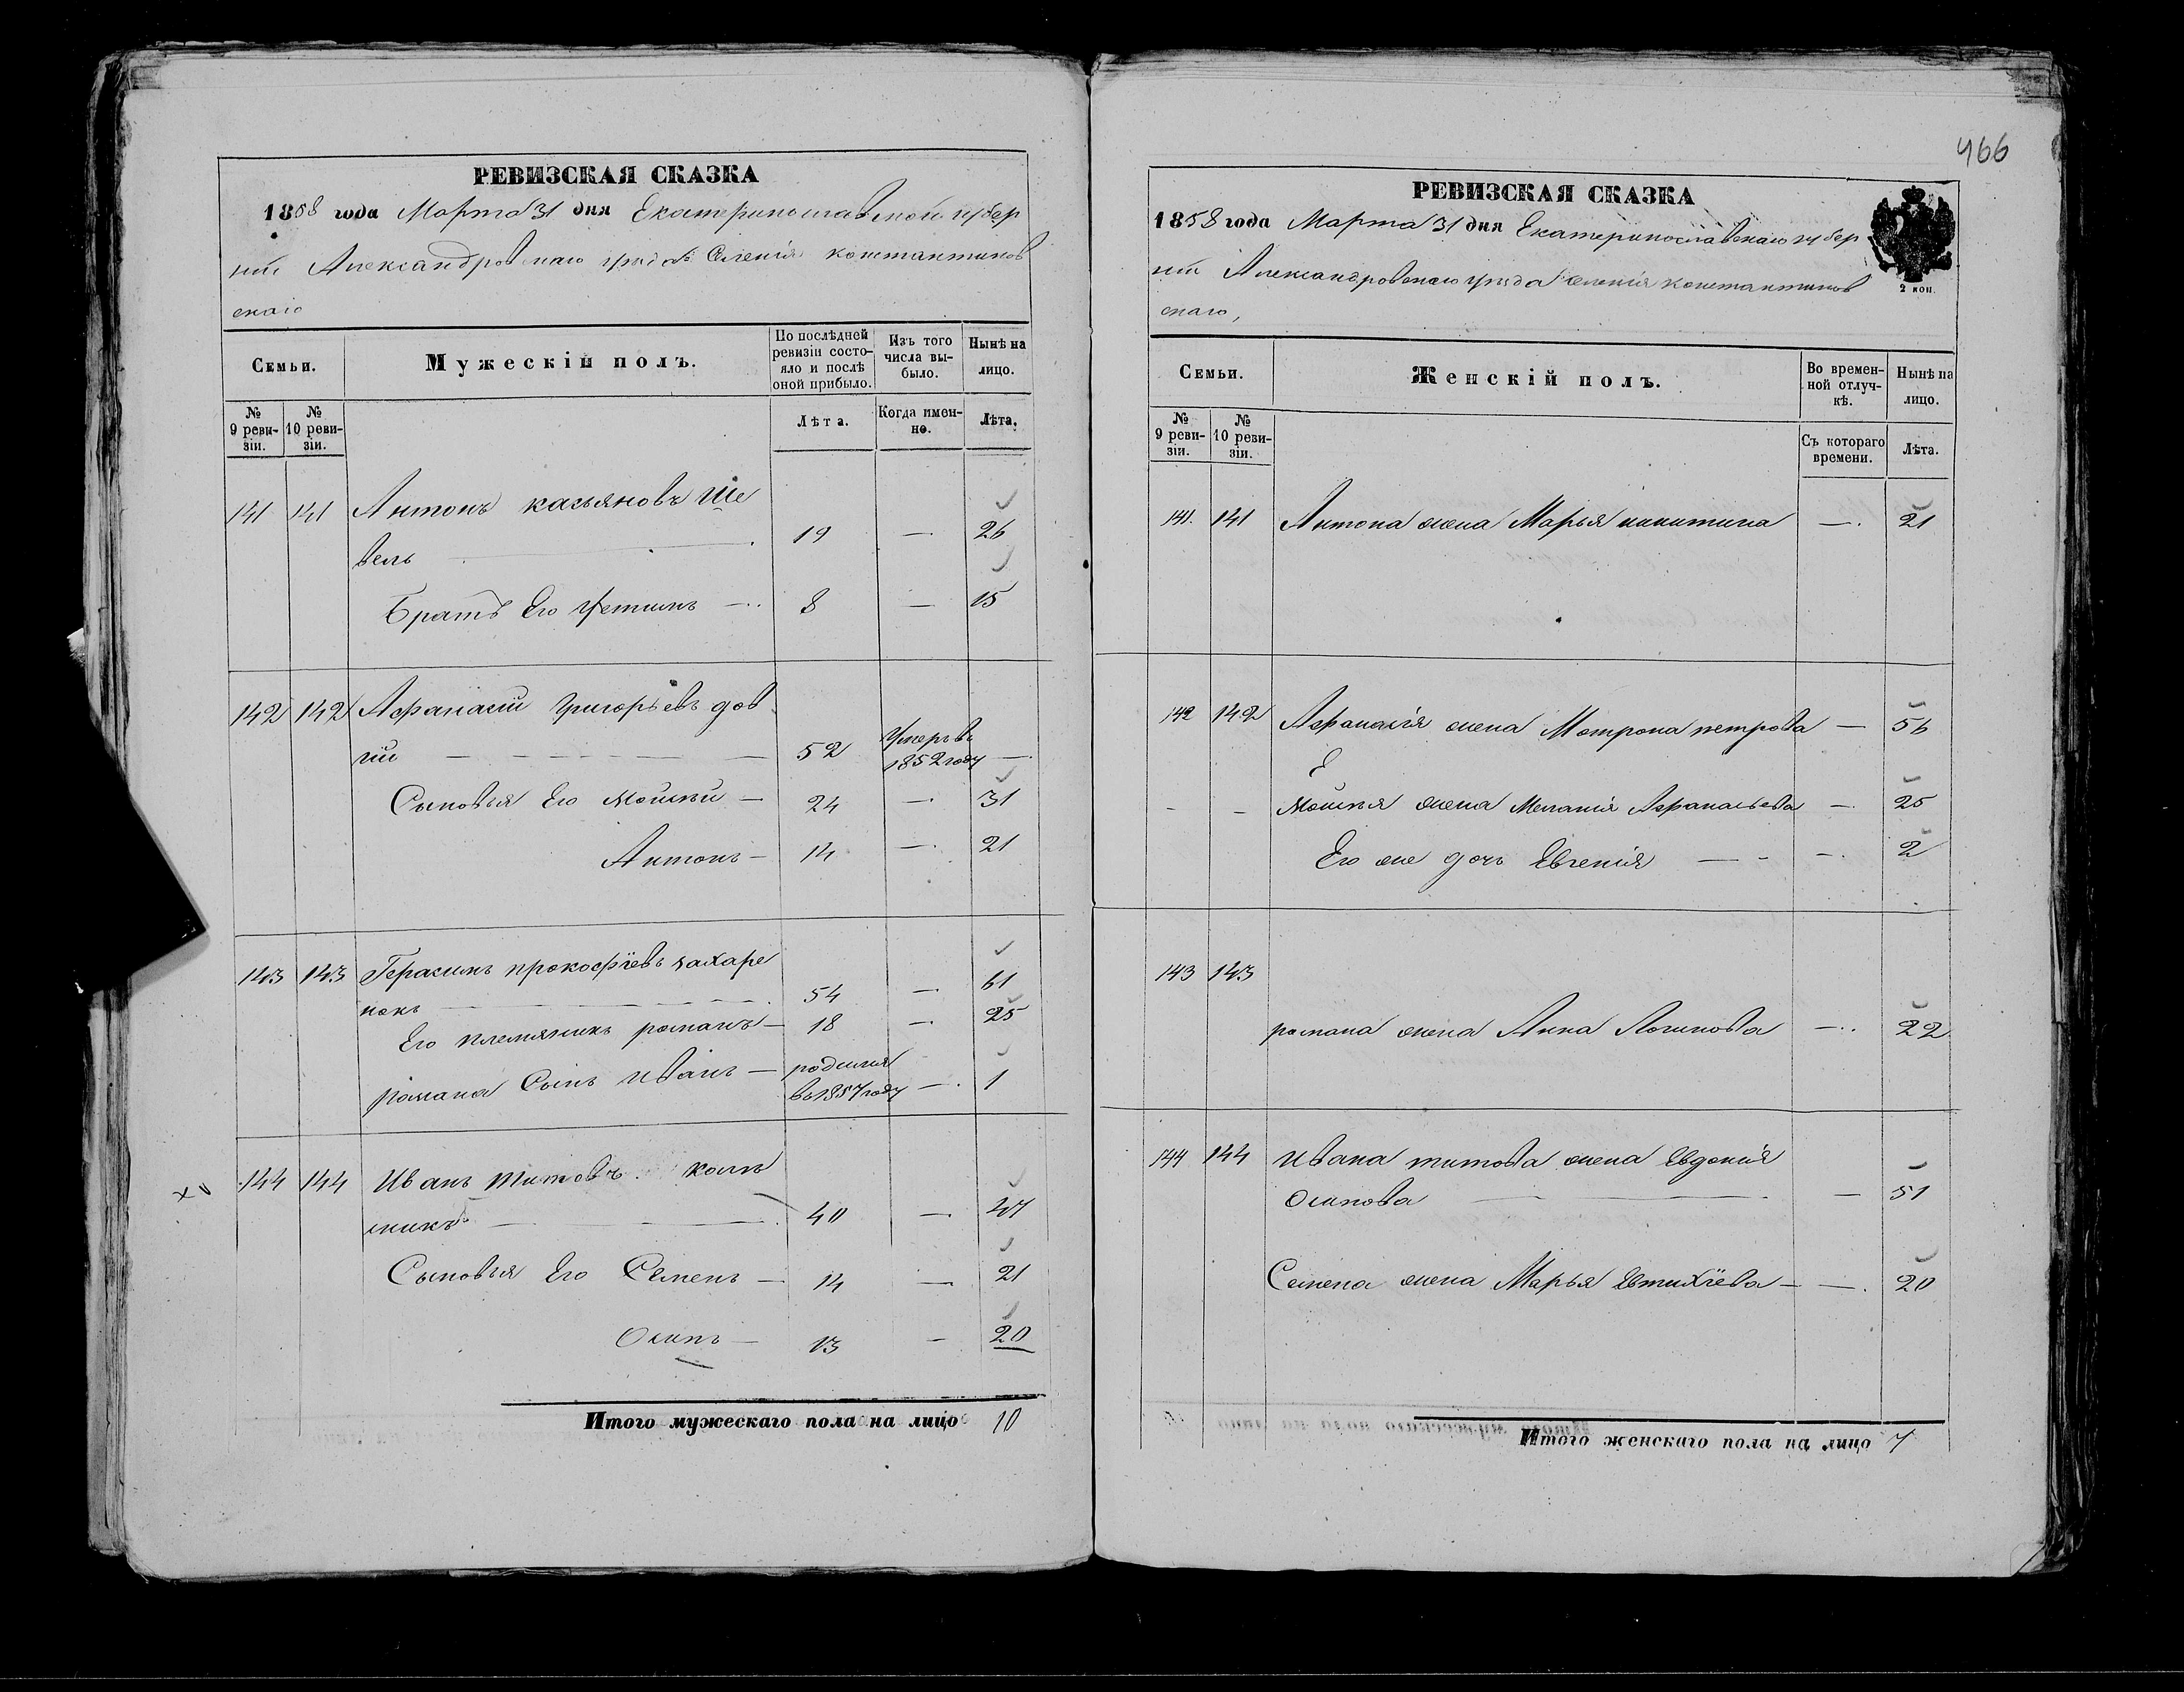 РЕВИЗСКАЯ СКАЗКА
1858 года Марта 31 дня Екатеринославской губер
нiи Александровскаго уѣзда Селенiя Константинов
скаго
Семьи.
Мужескiй полъ.
По послѣдней ревизiи состояло и послѣ оной прибыло.
Изъ того числа выбыло.
Нынѣ на лицо.
№ 9 ревизiи.
№ 10 ревизiи.
Лѣта.
Когда именно.
Лѣта.
141 141 Антонъ касьяновъ Ше
вель — 19 — 26
Братъ Его Устимъ — 8 — 15
142 142 Афанасiй Григорьевъ дов
гiй — 52 Умеръ въ 1852 году —
Сыновья Его Мойсѣй — 24 — 31
Антонъ — 14 — 21
143 143 Герасимъ прокофiевъ захаре
нокъ — 54 — 61
Его племяникъ романъ — 18 — 25
романа Сынъ Иванъ — родился въ 1857 году — 1
144 144 Иванъ титовъ
40 — 47
Сыновья Его Семенъ — 14 — 21
Осипъ — 13 — 20
Итого мужескаго пола на лицо 10
466
РЕВИЗСКАЯ СКАЗКА
1858 года Марта 31 дня Екатеринославскаго губер
нiи Александровскаго уѣзда Селенiя константинов
скаго,
2 коп.
Семьи.
Женскiй полъ.
Во временной отлучкѣ.
Нынѣ на лицо.
№ 9 ревизiи.
№ 10 ревизiи.
Съ котораго времени.
Лѣта.
141. 141 Антона жена Марья никитина — 21
142 142 Афанасiя жена Мотрона петрова — 56
Мойсѣя жена Меланiя Афанасьева — 25
Его же дочь Евгенiя — 2
143 143
романа жена Анна Логинова — 22
144 144 Ивана титова жена Евдокiя
Осипова — 51
Семена жена Марья Евтихiева — 20
Итого женскаго пола на лицо 7